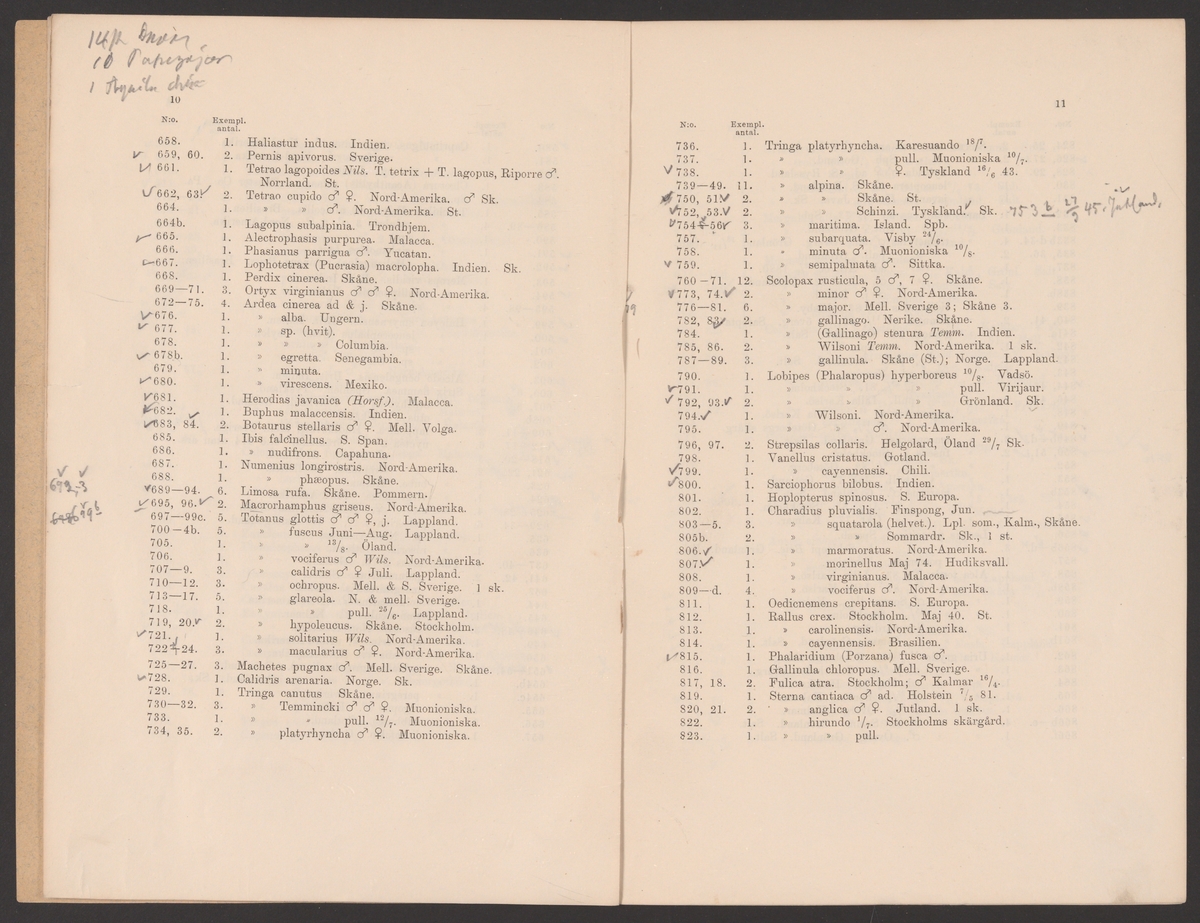 10
N:o. Exempl. antal.
658. 1. Haliastur indus. Indien.
659, 60. 2. Pernis apivorus. Sverige.
661. 1. Tetrao lagopoides Nils. T. tetrix + T. lagopus, Riporre ♂.
Norrland. St.
662, 63. 2. Tetrao cupido ♂ ♀. Nord-Amerika. ♂ Sk.
664. 1. » » ♂. Nord-Amerika. St.
664b. 1. Lagopus subalpinia. Trondhjem.
665. 1. Alectrophasis purpurea. Malacca.
666. 1. Phasianus parrigua ♂. Yucatan.
667. 1. Lophotetrax (Pucrasia) macrolopha. Indien. Sk.
668. 1. Perdix cinerea. Skåne.
669—71. 3. Ortyx virginianus ♂ ♂ ♀. Nord-Amerika.
672—75. 4. Ardea cinerea ad & j. Skåne.
676. 1. » alba. Ungern.
677. 1. » sp. (hvit).
678. 1. » » » Columbia.
678b. 1. » egretta. Senegambia.
679. 1. » minuta.
680. 1. » virescens. Mexiko.
681. 1. Herodias javanica (Horsf.). Malacca.
682. 1. Buphus malaccensis. Indien.
683, 84. 2. Botaurus stellaris ♂ ♀. Mell. Volga.
685. 1. Ibis falcinellus. S. Span.
686. 1. » nudifrons. Capahuna.
687. 1. Numenius longirostris. Nord-Amerika.
688. 1. » phæopus. Skåne.
692,-3
689—94. 6. Limosa rufa. Skåne. Pommern.
695, 96. 2. Macrorhamphus griseus. Nord-Amerika.
697—99c. 5. Totanus glottis ♂ ♂ ♀, j. Lappland.
700—4b. 5. » fuscus Juni—Aug. Lappland.
705. 1. » » 13/8. Öland.
706. 1. » vociferus ♂ Wils. Nord-Amerika.
707—9. 3. » calidris ♂ ♀ Juli. Lappland.
710—12. 3. » ochropus. Mell. & S. Sverige. 1 sk.
713—17. 5. » glareola. N. & mell. Sverige.
718. 1. » » pull. 25/6. Lappland.
719, 20. 2. » hypoleucus. Skåne. Stockholm.
721. 1. » solitarius Wils. Nord-Amerika.
722—24. 3. » macularius ♂ ♀. Nord-Amerika.
725—27. 3. Machetes pugnax ♂. Mell. Sverige. Skåne.
728. 1. Calidris arenaria. Norge. Sk.
729. 1. Tringa canutus Skåne.
730—32. 3. » Temmincki ♂ ♂ ♀. Muonioniska.
733. 1. » » pull. 12/7. Muonioniska.
734, 35. 2. » platyrhyncha ♂ ♀. Muonioniska.
11
N:o. Exempl. antal.
736. 1. Tringa platyrhyncha. Karesuando 18/7.
737. 1. » » pull. Muonioniska 10/7.
738. 1. » » ♀. Tyskland 16/6 43.
739—49. 11. » alpina. Skåne.
750, 51. 2. » » Skåne. St.
752, 53. 2. » » Schinzi. Tyskland. Sk. 753 b 27/3 45. Jutland.
754—56. 3. » maritima. Island. Spb.
757. 1. » subarquata. Visby 24/6.
758. 1. » minuta ♂. Muonioniska 10/8.
759. 1. » semipalmata ♂. Sittka.
760—71. 12. Scolopax rusticula, 5 ♂, 7 ♀. Skåne.
773, 74. 2. » minor ♂ ♀. Nord-Amerika.
776—81. 6. » major. Mell. Sverige 3; Skåne 3.
782, 83. 2. » gallinago. Nerike. Skåne.
784. 1. » (Gallinago) stenura Temm. Indien.
785, 86. 2. » Wilsoni Temm. Nord-Amerika. 1 sk.
787—89. 3. » gallinula. Skåne (St.); Norge. Lappland.
790. 1. Lobipes (Phalaropus) hyperboreus 10/8. Vadsö.
791. 1. » » » pull. Virijaur.
792, 93. 2. » » » Grönland. Sk.
794. 1. » Wilsoni. Nord-Amerika.
795. 1. » » ♂. Nord-Amerika.
796, 97. 2. Strepsilas collaris. Helgolard, Öland 29/7 Sk.
798. 1. Vanellus cristatus. Gotland.
799. 1. » cayennensis. Chili.
800. 1. Sarciophorus bilobus. Indien.
801. 1. Hoplopterus spinosus. S. Europa.
802. 1. Charadius pluvialis. Finspong, Jun.
803—5. 3. » squatarola (helvet.). Lpl. som., Kalm., Skåne.
805b. 2. » » Sommardr. Sk., 1 st.
806. 1. » marmoratus. Nord-Amerika.
807. 1. » morinellus Maj 74. Hudiksvall.
808. 1. » virginianus. Malacca.
809—d. 4. » vociferus ♂. Nord-Amerika.
811. 1. Oedicnemus crepitans. S. Europa.
812. 1. Rallus crex. Stockholm. Maj 40. St.
813. 1. » carolinensis. Nord-Amerika.
814. 1. » cayennensis. Brasilien.
815. 1. Phalaridium (Porzana) fusca ♂.
816. 1. Gallinula chloropus. Mell. Sverige.
817, 18. 2. Fulica atra. Stockholm; ♂ Kalmar 16/4.
819. 1. Sterna cantiaca ♂ ad. Holstein 7/5 81.
820, 21. 2. » anglica ♂ ♀. Jutland. 1 sk.
822. 1. » hirundo 1/7. Stockholms skärgård.
823. 1. » » pull.